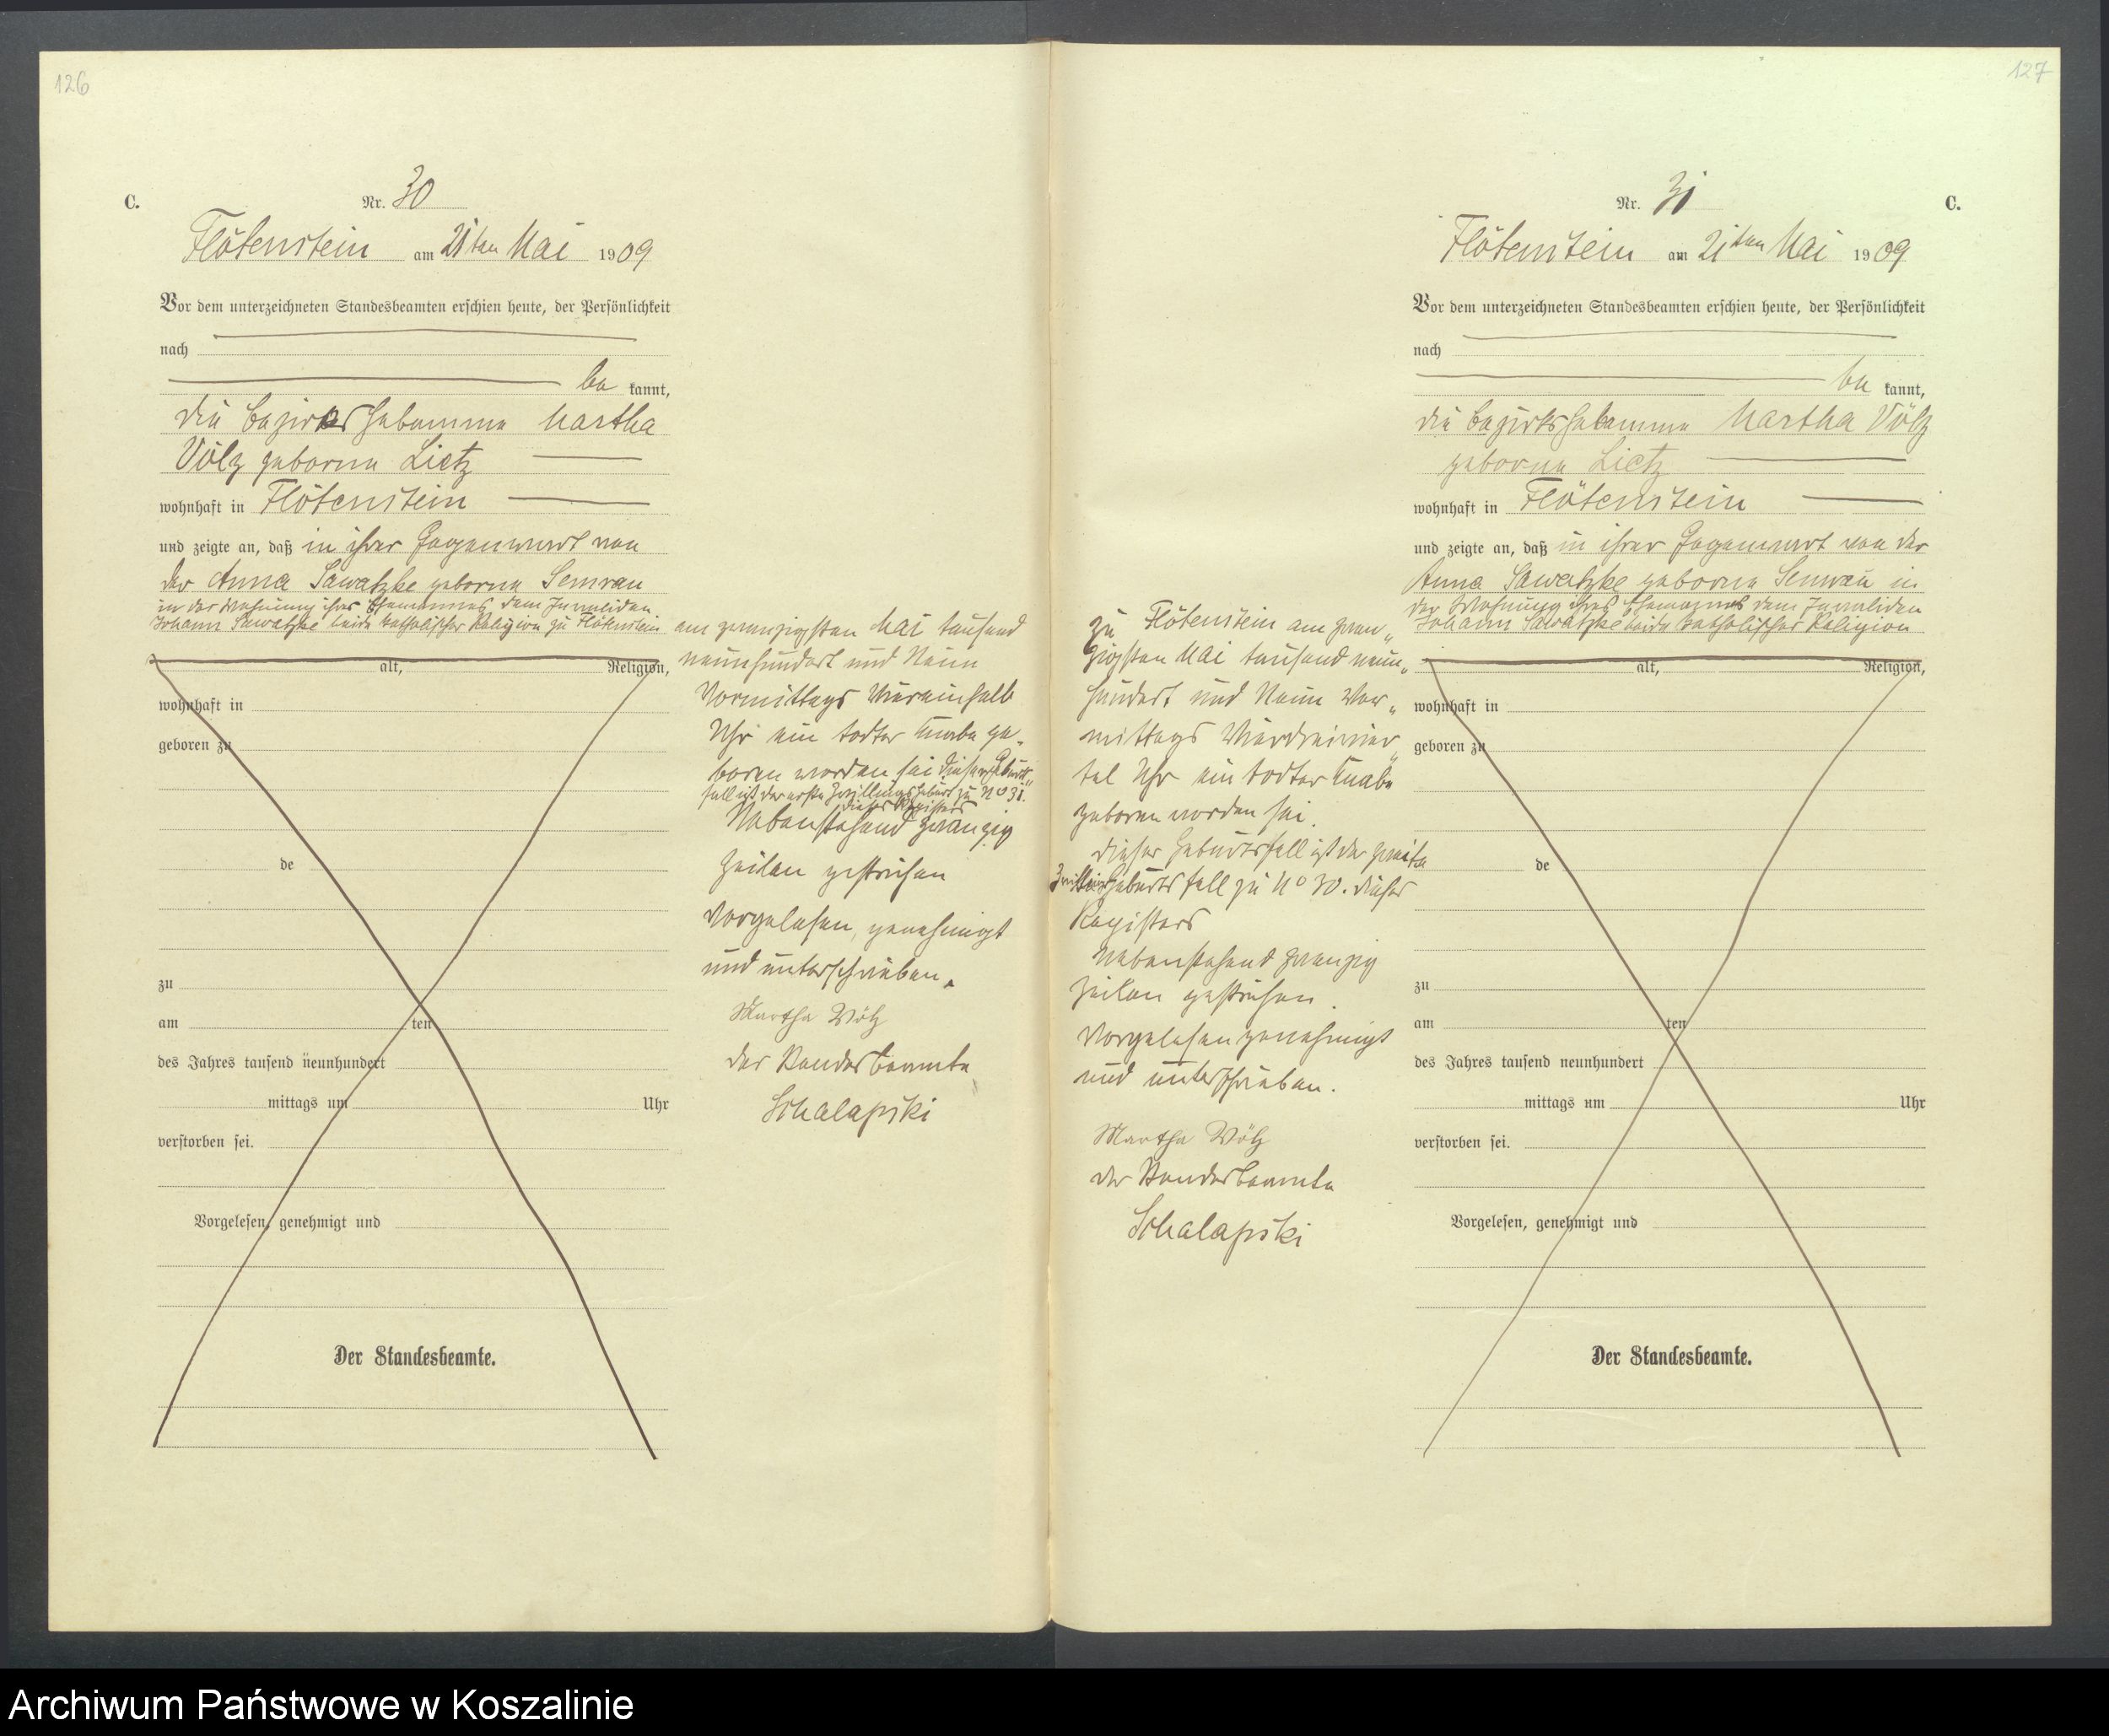 126
C.
Nr. 30
Flötenstein am 21ten Mai 1909
Vor dem unterzeichneten Standesbeamten erschien heute, der Persönlichkeit
nach
be kannt,
die Bezirkshebamme Martha
Völz geborne Lietz
wohnhaft in Flötenstein
und zeigte an, daß in ihrer Gegenwart von
der Anna Sawatzke geborne Semrau
in der Wohnung ihres Ehemannes dem Invaliden
Johann Sawatzke beide katholischer Religion zu Flötenstein
alt, Religion,
wohnhaft in
geboren zu
de
zu
am ten
des Jahres tausend neunhundert
mittags um Uhr
verstorben sei.
Vorgelesen, genehmigt und
Der Standesbeamte.
am zwanzigsten Mai tausend
neunhundert und Neun
Vormittags Viereinhalb
Uhr ein todter Knabe ge„
boren worden sei dieser Geburts„
fall ist der erste Zwillingsgeburt zu No 31.
dieses Registers
Nebenstehend zwanzig
Zeilen gestrichen
Vorgelesen, genehmigt
und unterschrieben.
Martha Völz
Der Standesbeamte
Schalapski
127
Nr. 31
C.
Flötenstein am 21ten Mai 1909
Vor dem unterzeichneten Standesbeamten erschien heute, der Persönlichkeit
nach
be kannt,
die Bezirkshebamme Martha Völz
geborne Lietz
wohnhaft in Flötenstein
und zeigte an, daß in ihrer Gegenwart von der
Anna Sawatzke geborne Semrau in
der Wohnung ihres Ehemannes dem Invaliden
Johann Sawatzke beide katholischer Religion
alt, Religion,
wohnhaft in
geboren zu
de
zu
am ten
des Jahres tausend neunhundert
mittags um Uhr
verstorben sei.
Vorgelesen, genehmigt und
Der Standesbeamte.
zu Flötenstein am zwan„
zigsten Mai tausend neun„
hundert und Neun Vor„
mittags Vierdreivier„
tel Uhr ein todter Knabe
geboren worden sei.
Dieser Geburtsfall ist der zweite
Zwillingsgeburtsfall zu No 30. dieses
Registers
Nebenstehend zwanzig
Zeilen gestrichen.
Vorgelesen genehmigt
und unterschrieben.
Martha Völz
Der Standesbeamte
Schalapski
Archiwum Państwowe w Koszalinie